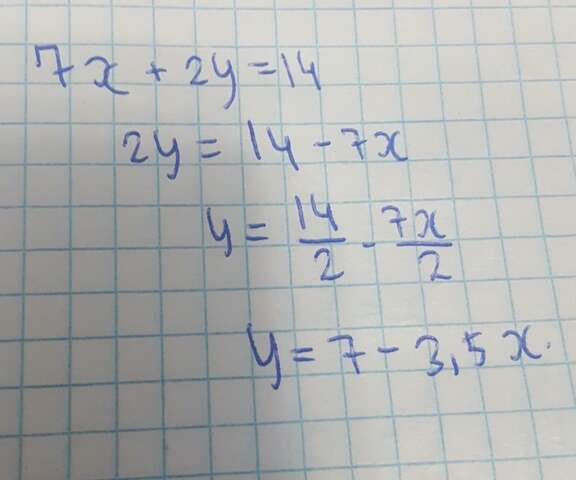 7x + 2y = 14
2y = 14 - 7x
y = 14/2 - 7x/2
y = 7 - 3,5x.